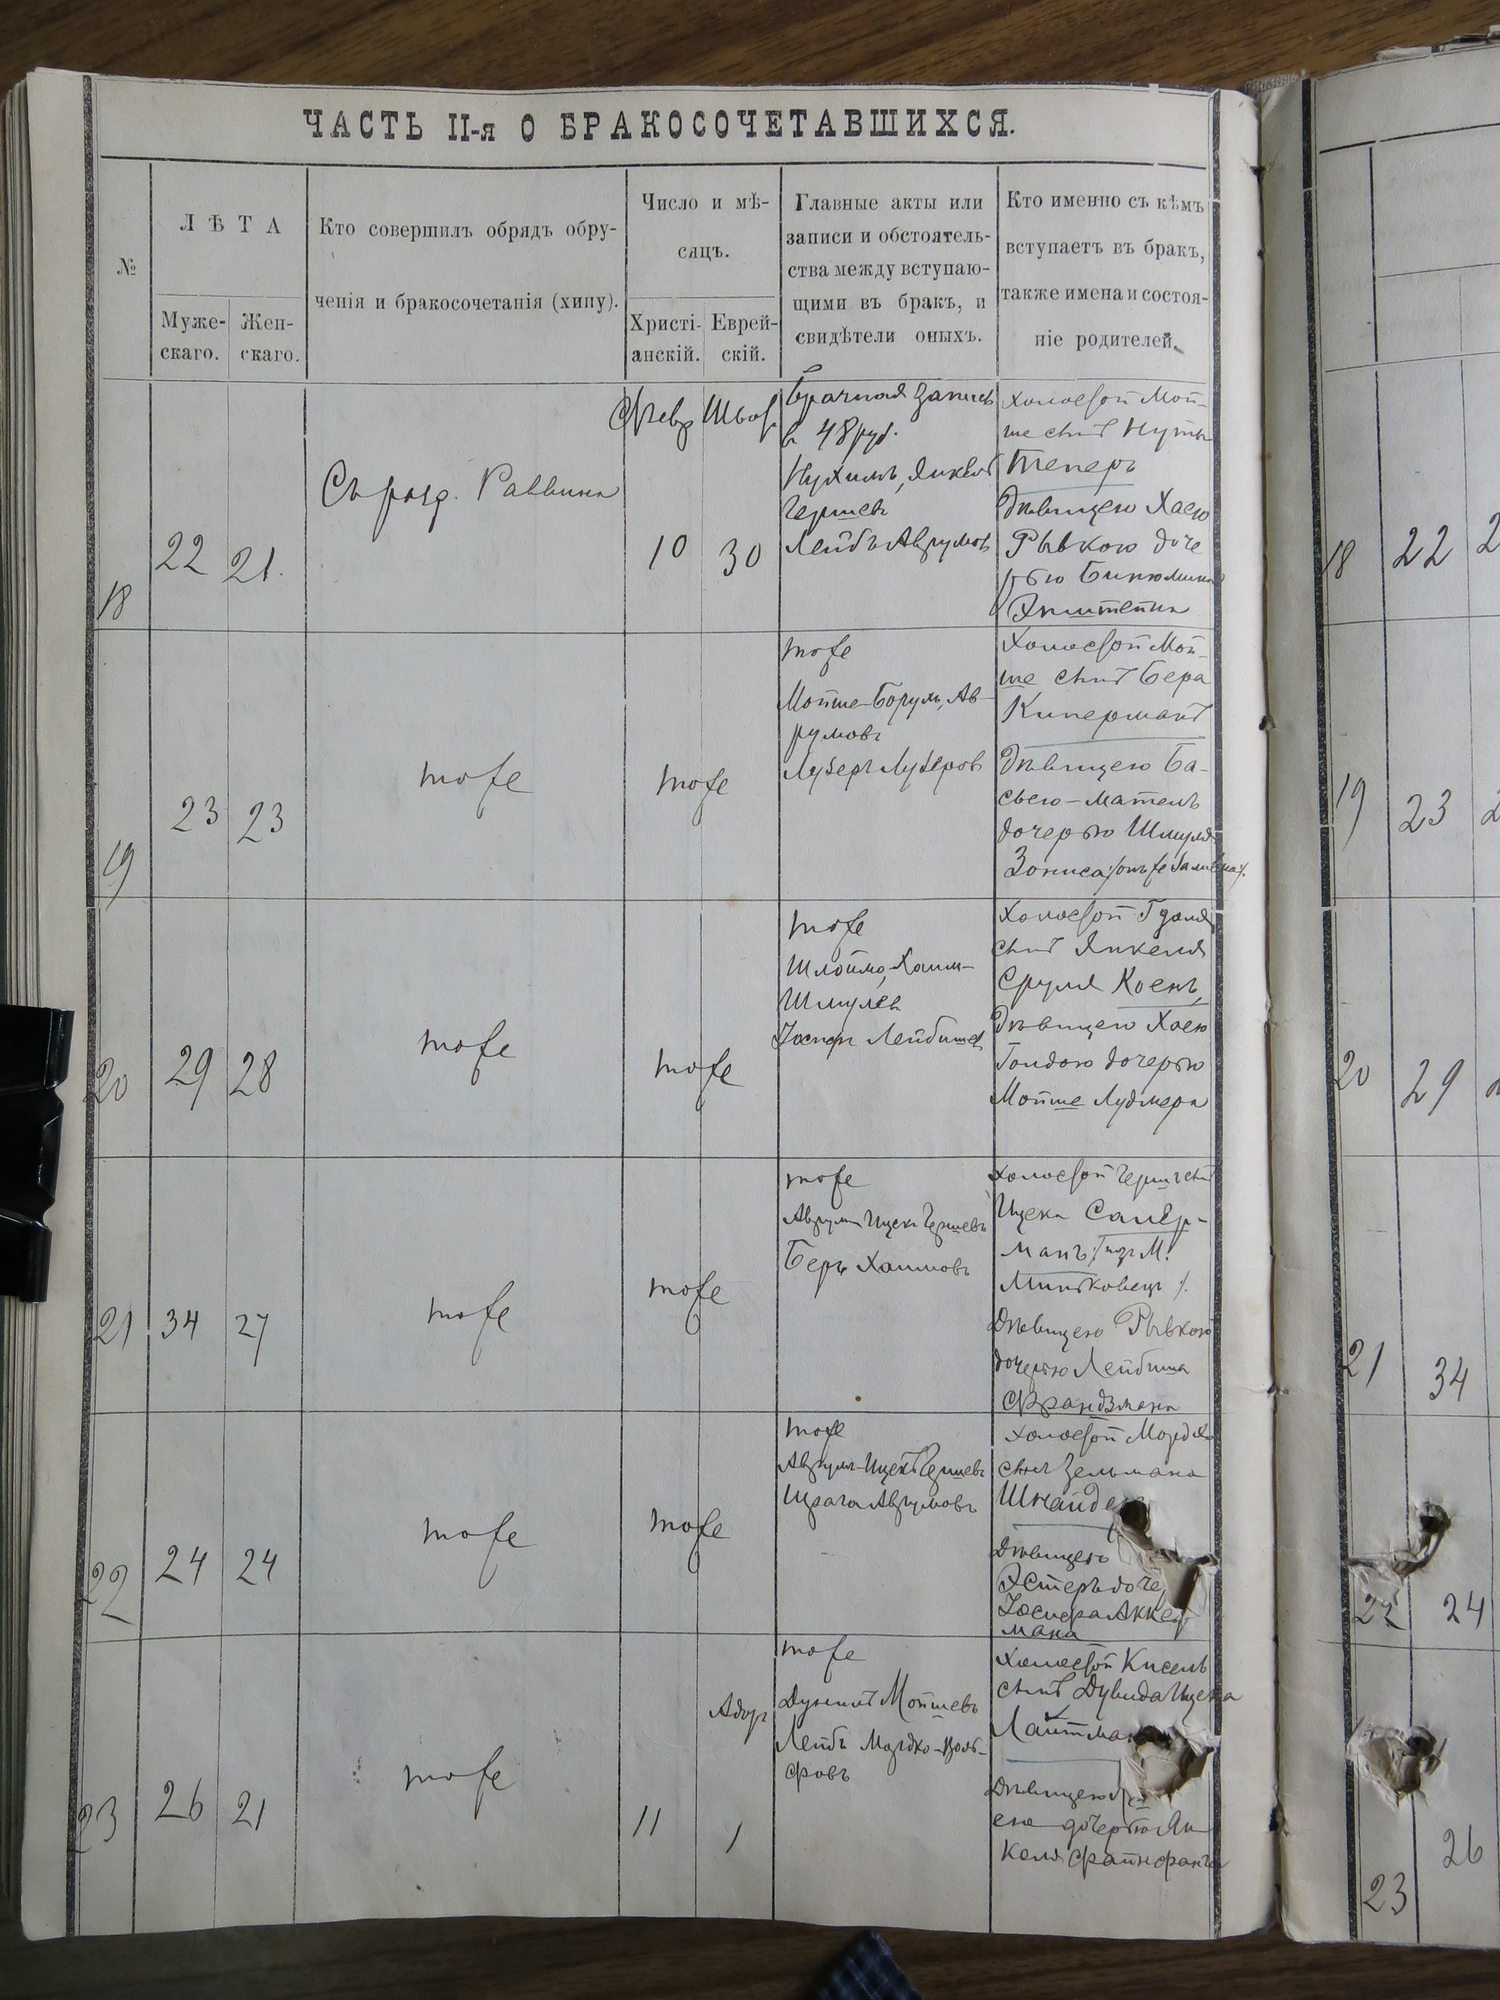 ЧАСТЬ II-я О БРАКОСОЧЕТАВШИХСЯ.
№
ЛѢТА
Муже-
скаго.
Жен-
скаго.
Кто совершилъ обрядъ обру-
ченія и бракосочетанія (хипу).
Число и мѣ-
сяцъ.
Христі-
анскій.
Еврей-
скій.
Главные акты или
записи и обстоятель-
ства между вступаю-
щими въ бракъ, и
свидѣтели оныхъ.
Кто именно съ кѣмъ
вступаетъ въ бракъ,
также имена и состоя-
ніе родителей.
18
22
21.
Съ разр. Раввина
Февр
10
30
Брачная запись
в 48 руб.
Нухимъ, Янкел
Гершев
Лейбъ Аврумов
Холостой Мой-
ше сынъ Нуты
Теперъ
Дѣвицею Хаею
Рывкою доче
рью Бинюмина
Эпштейна
19
23
23
тоже
тоже
тоже
Мойше-Борухъ, Ав-
румовъ
Лузеръ Лузеров
Холостой Мой-
ше сынъ Бера
Киперманъ
Дѣвицею Ба-
сьею-Матель
дочерью Шмуля
Зониса
20
29
28
тоже
тоже
тоже
Шлоймо, Хаим-
Шмулев
Іосифъ Лейбишев
Холостой Гдаля
сынъ Янкеля
Сруля Коенъ,
Дѣвицею Хаею
Голдою дочерью
Мойше Лудмера
21
34
27
тоже
тоже
тоже
Аврумъ Ицекъ Гершевъ
Беръ Хаимовъ
Холостой Гершъ сынъ
Ицека Салер-
манъ /: изъ М.
Миньковецъ /.
Дѣвицею Рывкою
дочерью Лейбиша
Франдзмана
22
24
24
тоже
тоже
тоже
Аврумъ-Ицекъ Гершевъ
Шрага Аврумовъ
Холостой Мордко
сынъ Зельмана
Шнайде
Дѣвицею
Эстеръ доче
Іосифа Аккер
мана
23
26
21
тоже
11
Адар
1
тоже
Дунилъ Мойшевъ
Лейбъ Мордко-Воль-
фовъ
Холостой Кисель
сынъ Дувида Ицека
Лайтма
Дѣвицею
ею дочерью Ян
келя Файнфанга
18
22
2
19
23
2
20
29
21
34
22
24
23
26